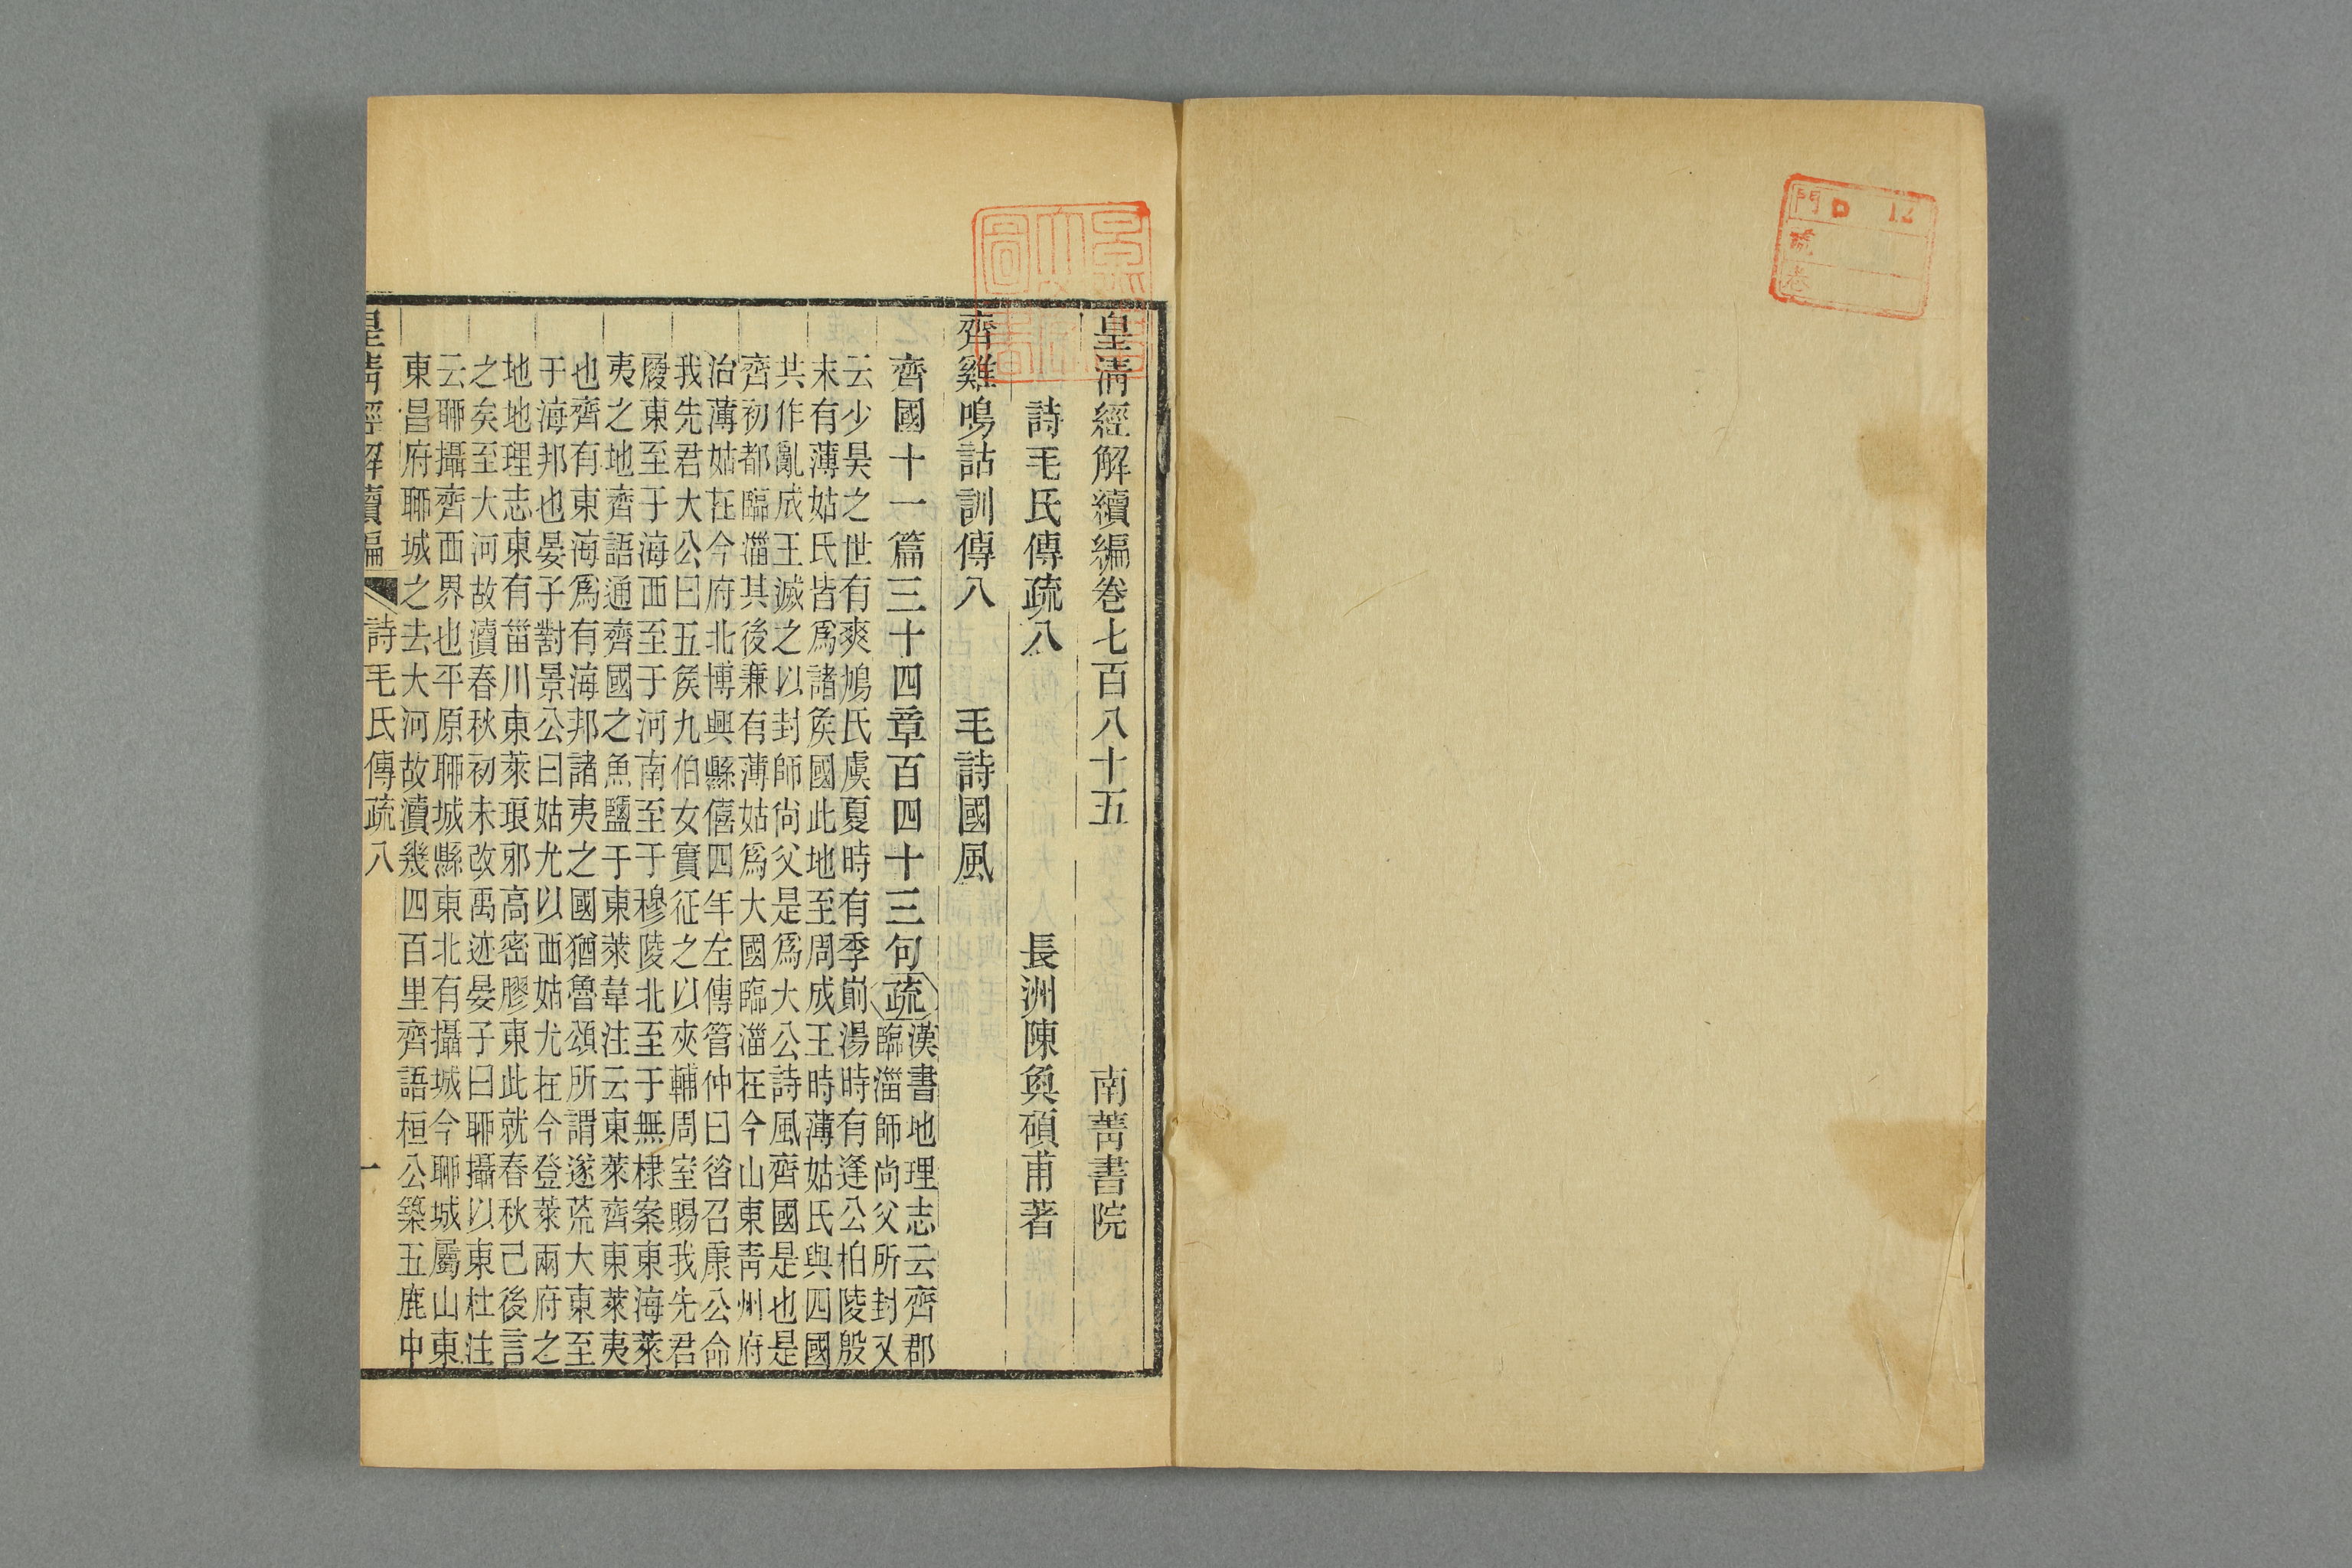 門 D 12
號
卷
皇清經解續編卷七百八十五 南菁書院
詩毛氏傳疏八 長洲陳奐碩甫著
齊雞鳴詁訓傳八 毛詩國風
齊國十一篇三十四章百四十三句 疏 漢書地理志云齊郡
臨淄師尚父所封又
云少昊之世有爽鳩氏虞夏時有季萴湯時有逢公柏陵殷
末有薄姑氏皆爲諸矦國此地至周成王時薄姑氏與四國
共作亂成王滅之以封師尚父是爲大公詩風齊國是也是
齊初都臨淄其後兼有薄姑爲大國臨淄在今山東青州府
治薄姑在今府北博興縣僖四年左傳管仲曰昝召康公命
我先君大公曰五矦九伯女實征之以夾輔周室賜我先君
履東至于海西至于河南至于穆陵北至于無棣案東海萊
夷之地齊語通齊國之魚鹽于東萊韋注云東萊齊東萊夷
也齊有東海爲有海邦諸夷之國猶魯頌所謂遂荒大東至
于海邦也晏子對景公曰姑尤以西姑尤在今登萊兩府之
地地理志東有甾川東萊琅邪高密膠東此就春秋己後言
之矣至大河故瀆春秋初未改禹迹晏子曰聊攝以東杜注
云聊攝齊西界也平原聊城縣東北有攝城今聊城屬山東
東昌府聊城之去大河故瀆幾四百里齊語桓公築五鹿中
皇清經解續編 詩毛氏傳疏八 一